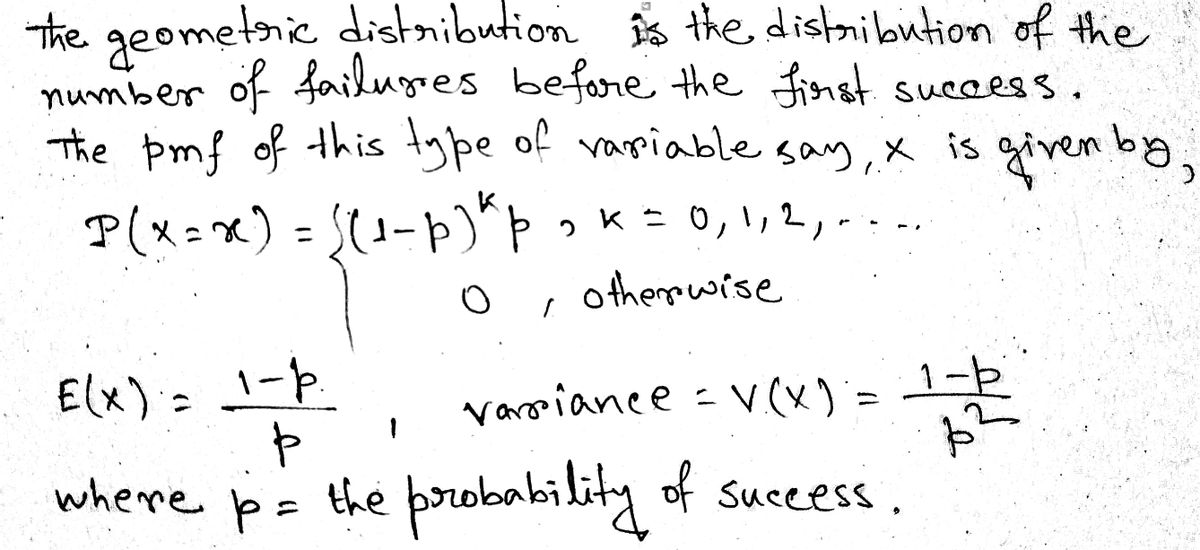 The geometric distribution is the distribution of the
number of failures before the first success.
The pmf of this type of variable say, x is given by,
P(x=x) = {(1-p)^k p , k = 0, 1, 2, .....
0 , otherwise
E(x) = (1-p)/p , variance = V(x) = (1-p)/p^2
where p = the probability of success.